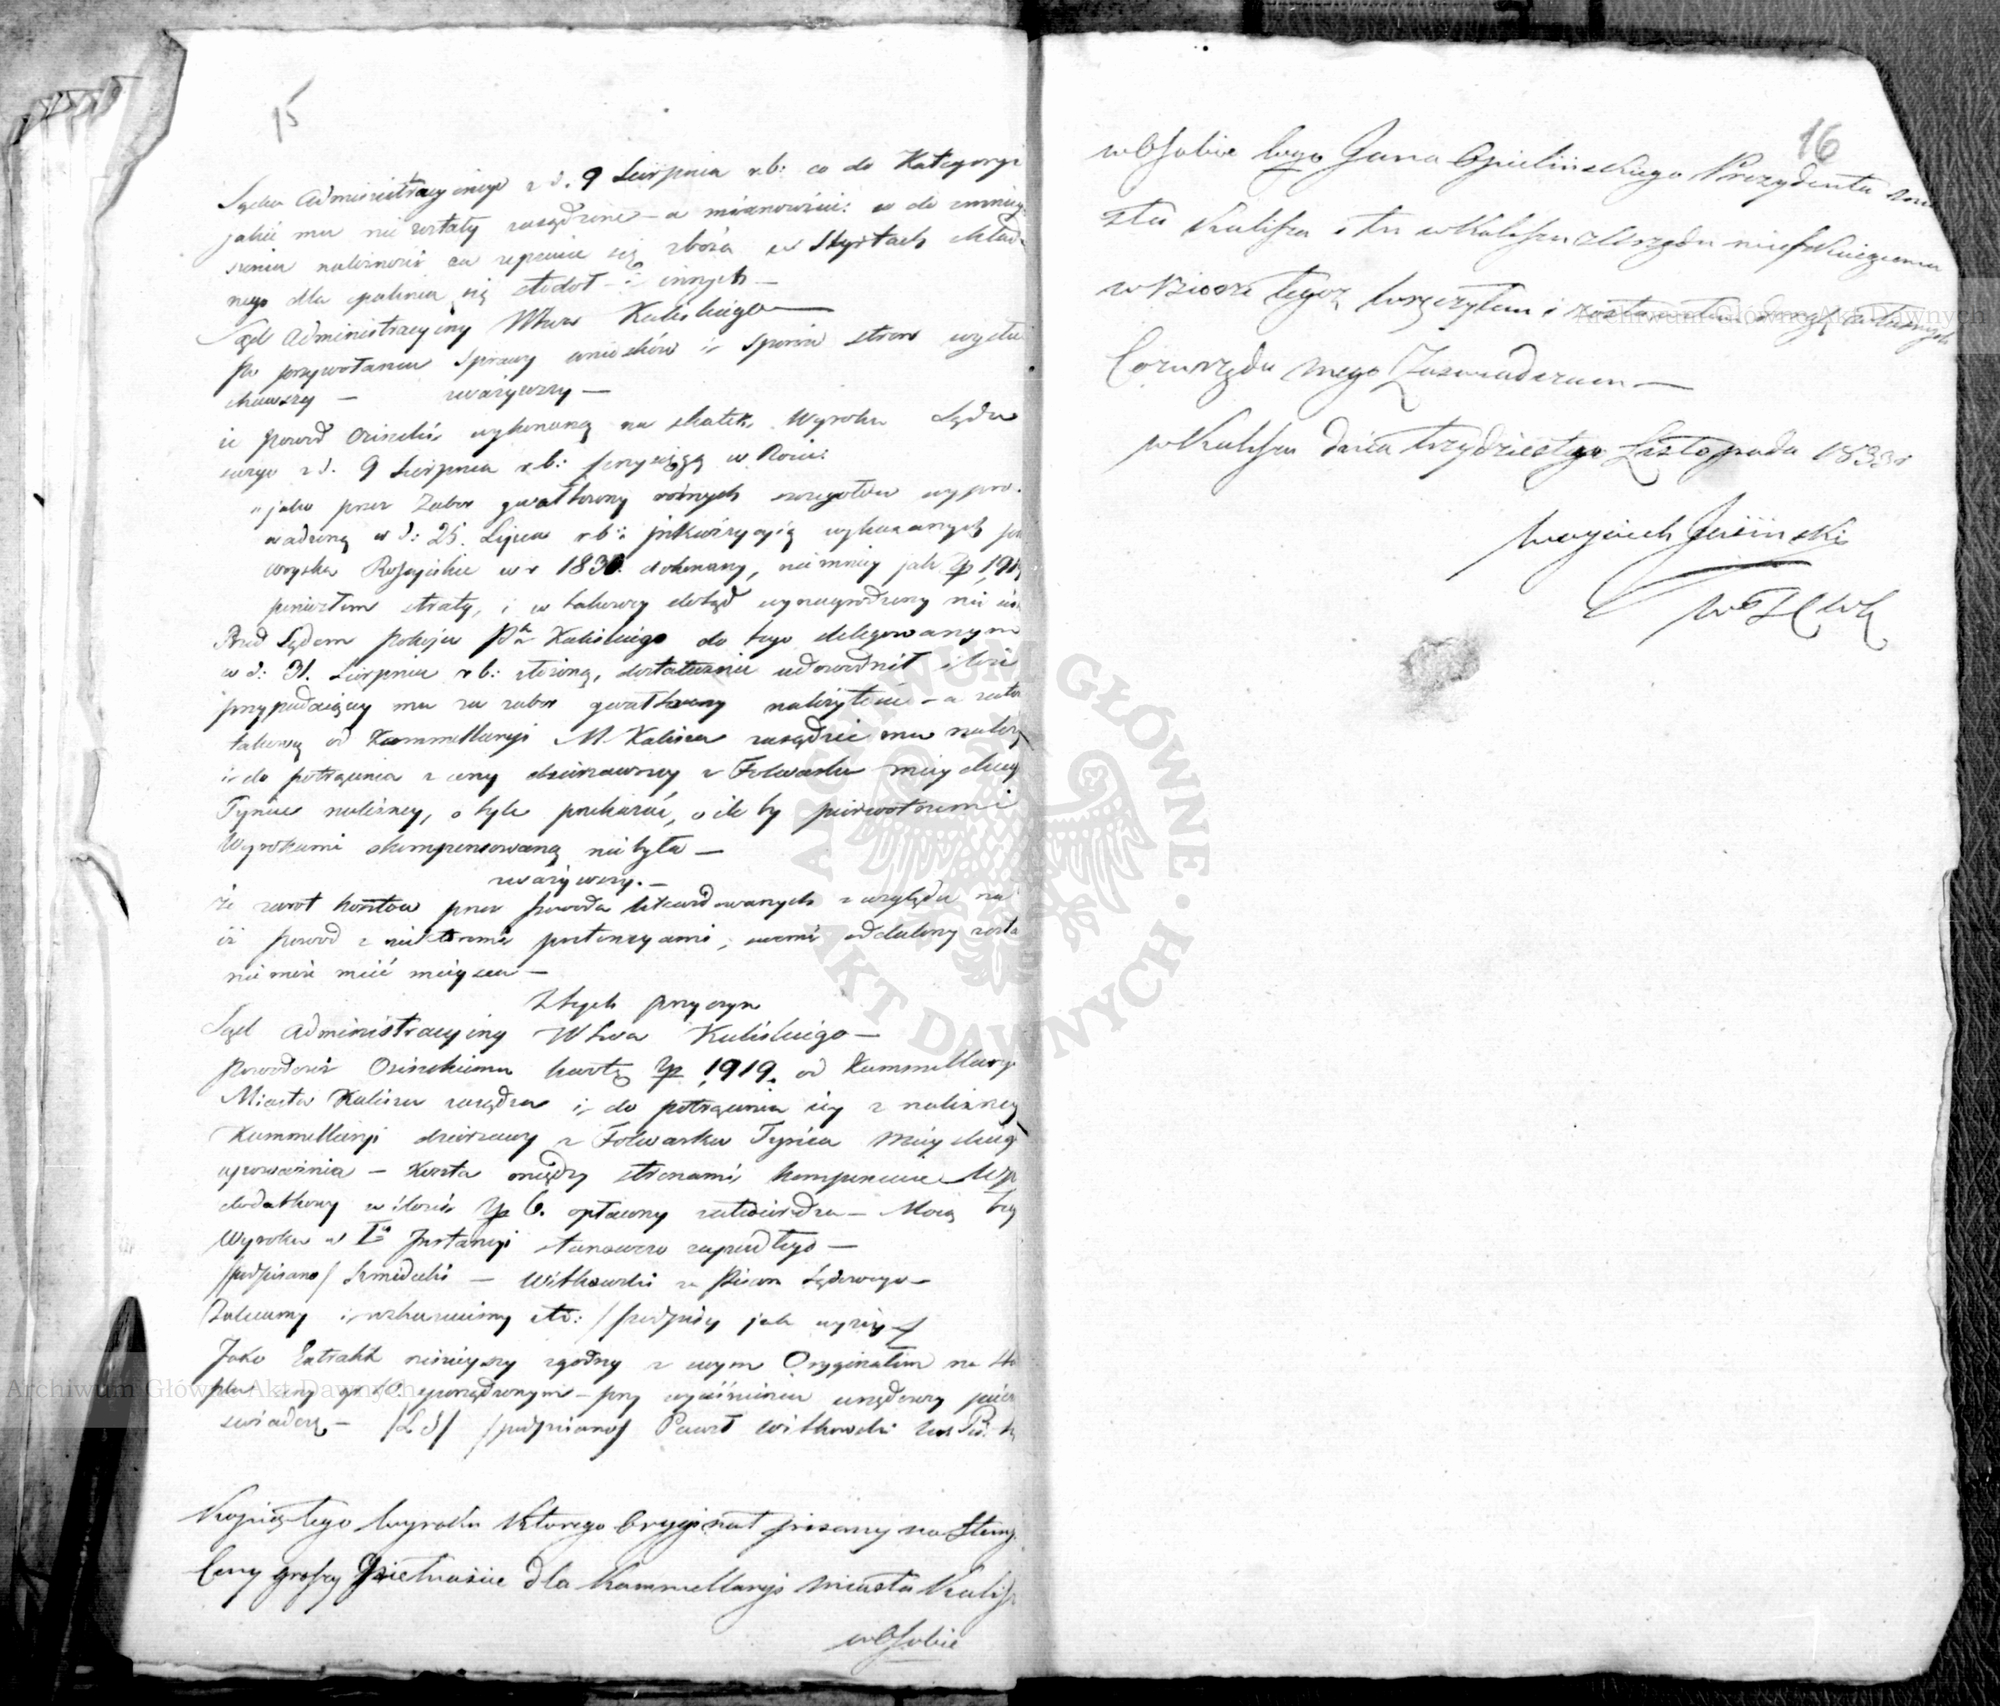 15
Sądu Administracyinego z d. 9 Sierpnia r. b: co do Kategoryi
jakie mu nie zostały zasądzone – a mianowicie: co do zmniey
szenia należności za zepsucie się zboża w Styrtach składa
nego dla spalenia się stodoł i innych –
Sąd Administracyiny Wtwa Kaliskiego
Po przywołaniu Sprawy wniosków i sporów stron wysłu
chawszy – zważywszy –
że powód Osiński wykonaną na skutek Wyroku Sądu
swego z d. 9 Sierpnia r. b: przysięgą w Rocie:
„jako przez Zabor gwałtowny różnych szczegółów wypro-
wadzoną w d: 25. Lipca r b: inkwizycyią wykazanych prz
woysko Rossyiskie w r 1831. dokonany, nie mniey jak Zp 1,919
poniosłem straty, i w takowey dotąd wynagrodzony nie ies
Przed Sądem Pokoju Ptu Kaliskiego do tego delegowanym
w d: 31. Sierpnia r b: złożoną, dostatecznie udowodnił ilość
przypadaiącey mu za zabor gwałtowny należytości – a zate
takową od Kammellaryi M. Kalisza zasądzić mu należy
i do potrącenia z ceny dzierżawney z Folwarku mieyskiey
Tyniec należney, o tyle przekazać, o ile by pierwotnemi
Wyrokami skompensowaną nie była –
zważywszy. –
że zwrot kosztow przez powoda likwidowanych z względu na
iż powod z niektoremi pretensyami, swemi oddalony zosta
nie może mieć mieysca –
Z tych przyczyn
Sąd Administracyiny Wtwa Kaliskiego –
powodowi Osinskiemu kwotę Zp 1,919. od Kammellaryi
Miasta Kalisza zasądza i do potrącenia iey z należney
Kammellaryi dzierżawy z Folwarku Tyńca Mieyskieg
upoważnia – Koszta między stronami kompensuie
dodatkowy w ilości Zp 6. opłacony zatwierdza – Mocą
Wyroku w Iey Instancyi stanowczo zapadłego –
/podpisano/ Szmidecki – Witkowski za Pisarz Sądowego –
Zalecamy i rozkazuiemy etc: /podpisy jak wyżey/
Jako Extrakt ninieyszy zgodny z swym Oryginałem na Ste
plu ceny gr. sporządzonym – przy wyciśnieniu urzędowey piecz
świadczę – /L S/ /podpisano/ Paweł Witkowski Zas Pis:
Kopię tego wyroku którego oryginał pisany na Stemp.
Ceny groszy Piętnaście dla Kammellaryi Miasta Kalisz
w Osobie
16
w Osobie Wgo Jana Opielińskiego Prezydenta mia
sta Kalisza tu w Kaliszu z Urzędu mieszkaiącemu
w Biorze tegoż wręczyłem i zostawiłem
Co z urzędu mego Zaświadczam –
w Kaliszu dnia trzydziestego Listopada 1833 r
Woyciech Jasiński